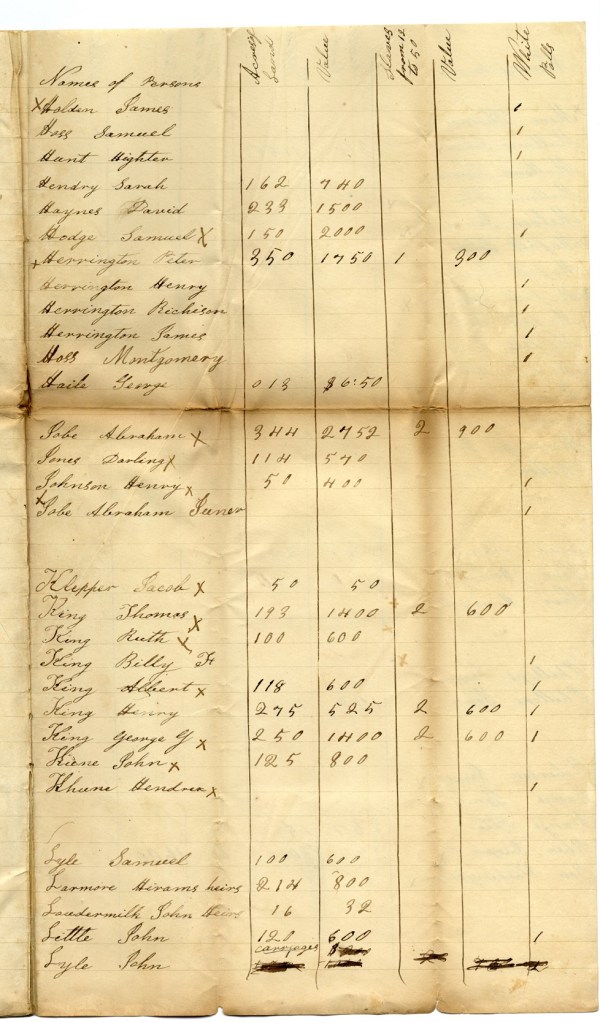 Names of Persons Acres Land Value Slaves from 12 to 50 Value White Polls
x Holden James 1
Hoss Samuel 1
Hunt Highter 1
Hendry Sarah 162 740
Haynes David 233 1500
Hodge Samuel x 150 2000 1
x Herrington Peter 350 1750 1 300
Herrington Henry 1
Herrington Richison 1
Herrington James 1
Hoss Montgomery 1
Haile George 013 $6.50
Jobe Abraham x 344 2752 2 900
Jones Darling x 114 570
Johnson Henry x 50 400 1
x Jobe Abraham Juner 1
Klepper Jacob x 50 50
King Thomas x 193 1400 2 600
King Ruth x 100 600
King Billy F 1
King Albert x 118 600 1
King Henry 275 525 2 600 1
King George G x 250 1400 2 600 1
Kiene John x 125 800
Khune Hendrex x 1
Lyle Samuel 100 600
Larmore Hirams heirs 214 800
Loudermilk John Heirs 16 32
Little John 120 600 1
carriages
Lyle John